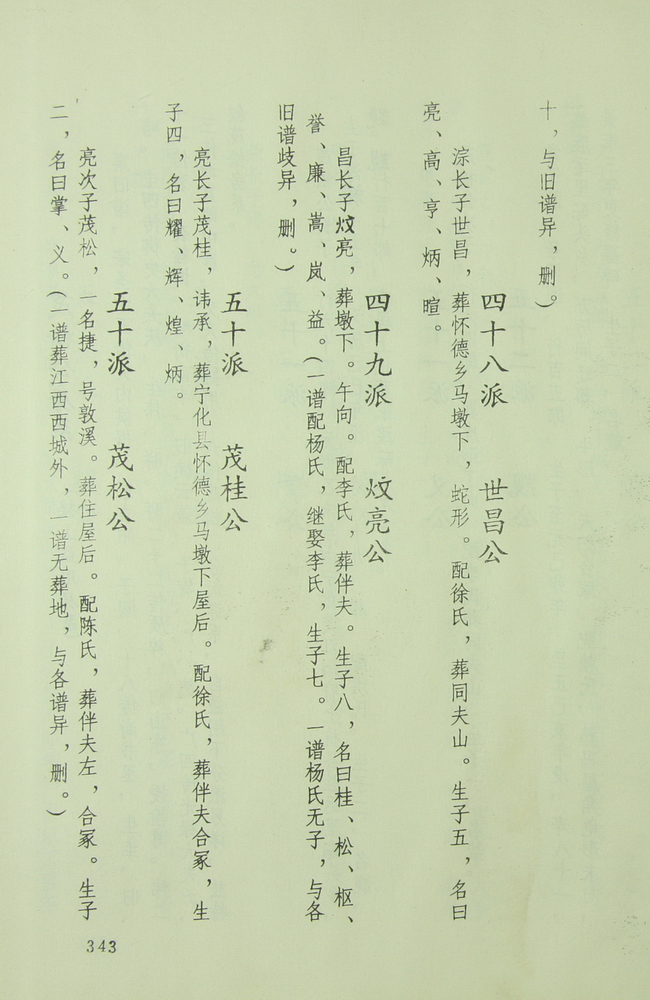 十，与旧谱异，删。）
四十八派　世昌公
淙长子世昌，葬怀德乡马墩下，蛇形。配徐氏，葬同夫山。生子五，名曰
亮、高、亨、炳、暄。
四十九派　炆亮公
昌长子炆亮，葬墩下。午向。配李氏，葬伴夫。生子八，名曰桂、松、枢、
誉、廉、嵩、岚、益。（一谱配杨氏，继娶李氏，生子七。一谱杨氏无子，与各
旧谱歧异，删。）
五十派　茂桂公
亮长子茂桂，讳承，葬宁化县怀德乡马墩下屋后。配徐氏，葬伴夫合冢，生
子四，名曰耀、辉、煌、炳。
五十派　茂松公
亮次子茂松，一名捷，号敦溪。葬住屋后。配陈氏，葬伴夫左，合冢。生子
二，名曰掌、义。（一谱葬江西西城外，一谱无葬地，与各谱异，删。）
343